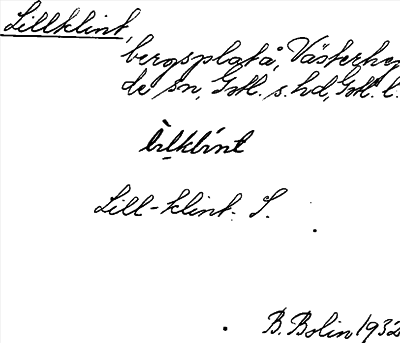 Lillklint,
bergsplatå, Västerhej
de sn, Gotl. s. hd, Gotl. l.
lìlklínt
Lill-klint. S.
B. Bolin 1932